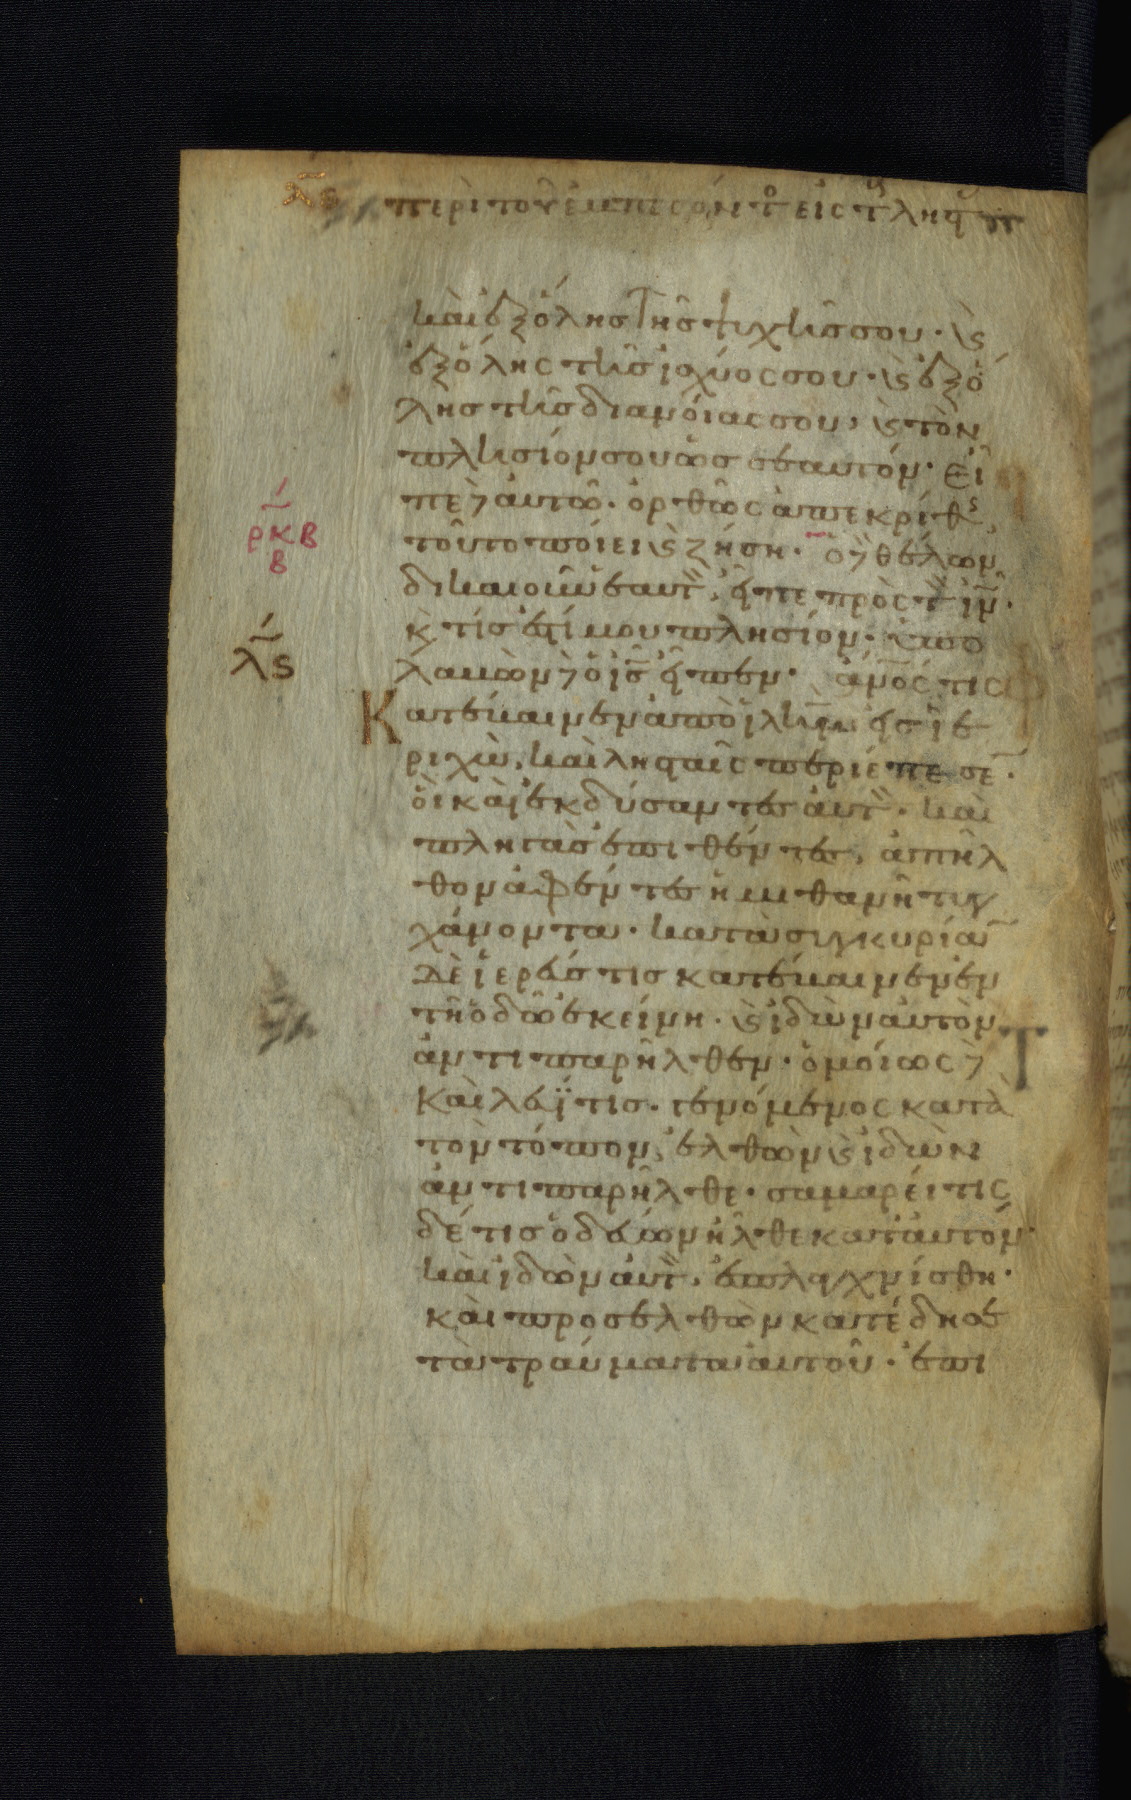 λς περὶ τοῦ ἐμπεσόντο εἰς τ λης
καὶ ἐξ ὅλης τῆς ψυχῆς σου· ϗ
ἐξ ὅλης τῆς ἰσχύος σου· ϗ ἐξ ὅ
λης τῆς διανοίας σου, ϗ τὸν
πλησίον σου ὡς σεαυτόν· Εἶ
πε δὲ αὐτῶ· ὀρθῶς ἀπεκρίθς
ρκβ
β
τοῦτο ποίει ϗ ζήση· ὁ δὲ θέλων
δικαιοῦν ἑαυτ, εἶπε πρὸς τ ιν·
κ τίς ἐστί μου πλησίον· ὑπο
λς
λαβὼν δὲ ὁ ις εἶπεν· ανος τις
Κατέβαινεν ἀπὸ ιλημ εἰς ἱε
ριχὼ, καὶ λησταῖς περιέπεσε·
οἳ καὶ ἐκδύσαντες αὐτ· καὶ
πληγὰς ἐπιθέντες, ἀπῆλ
θον ἀφέντες ἡμιθανῆ τυγ
χάνοντα· κατὰ συγκυρίαν
δὲ ἱερεύς τις κατέβαινεν ἐν
τῆ ὁδῶ ἐκείνη· ϗ ἰδὼν αὐτὸν
ἀντιπαρῆλθεν· ὁμοίως δὲ
καὶ λευΐτις· γενόμενος κατὰ
τὸν τόπον, ἐλθὼν ϗ ἰδὼν
ἀντιπαρῆλθε· σαμαρείτις
δέ τις ὁδεύων ἦλθε κατ αὐτόν·
καὶ ἰδὼν αὐτ, ἐσπλαγχνίσθη·
καὶ προσελθὼν κατέδησε
τὰ τραύματα αὐτοῦ· ἐπι